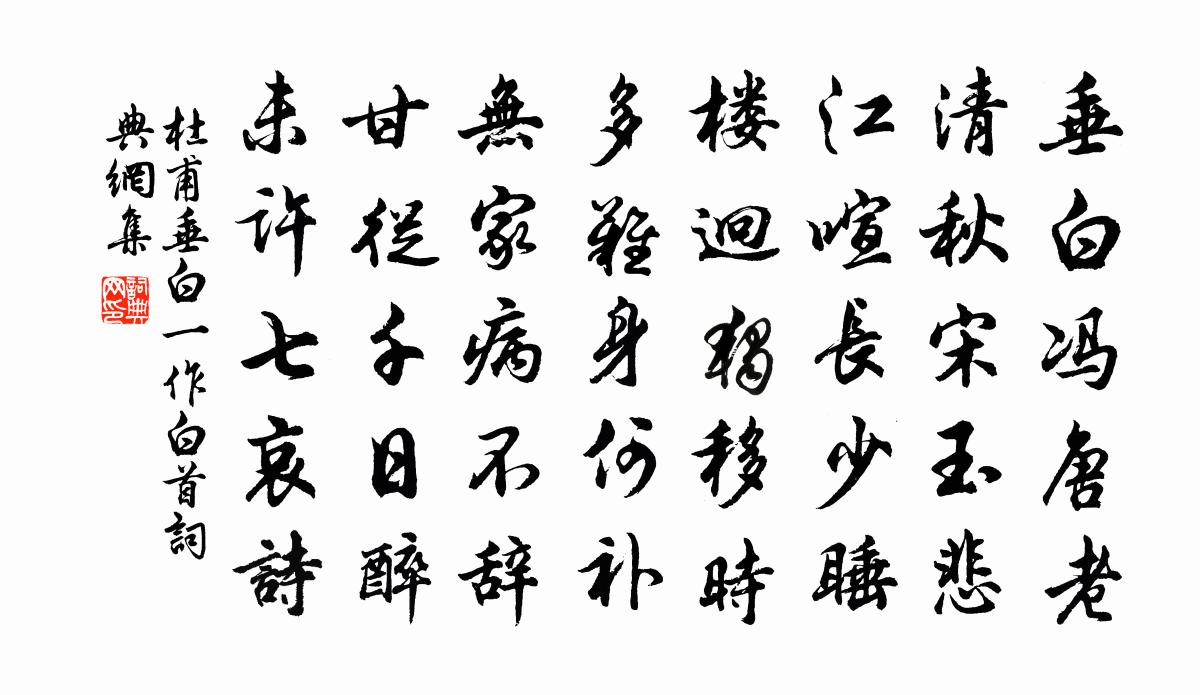 垂白冯唐老
清秋宋玉悲
江喧長少睡
楼迥獨移時
多難身何补
無家病不辞
甘従千日醉
未許七哀詩
杜甫垂白一作白首詞
典網集
詞典
网印